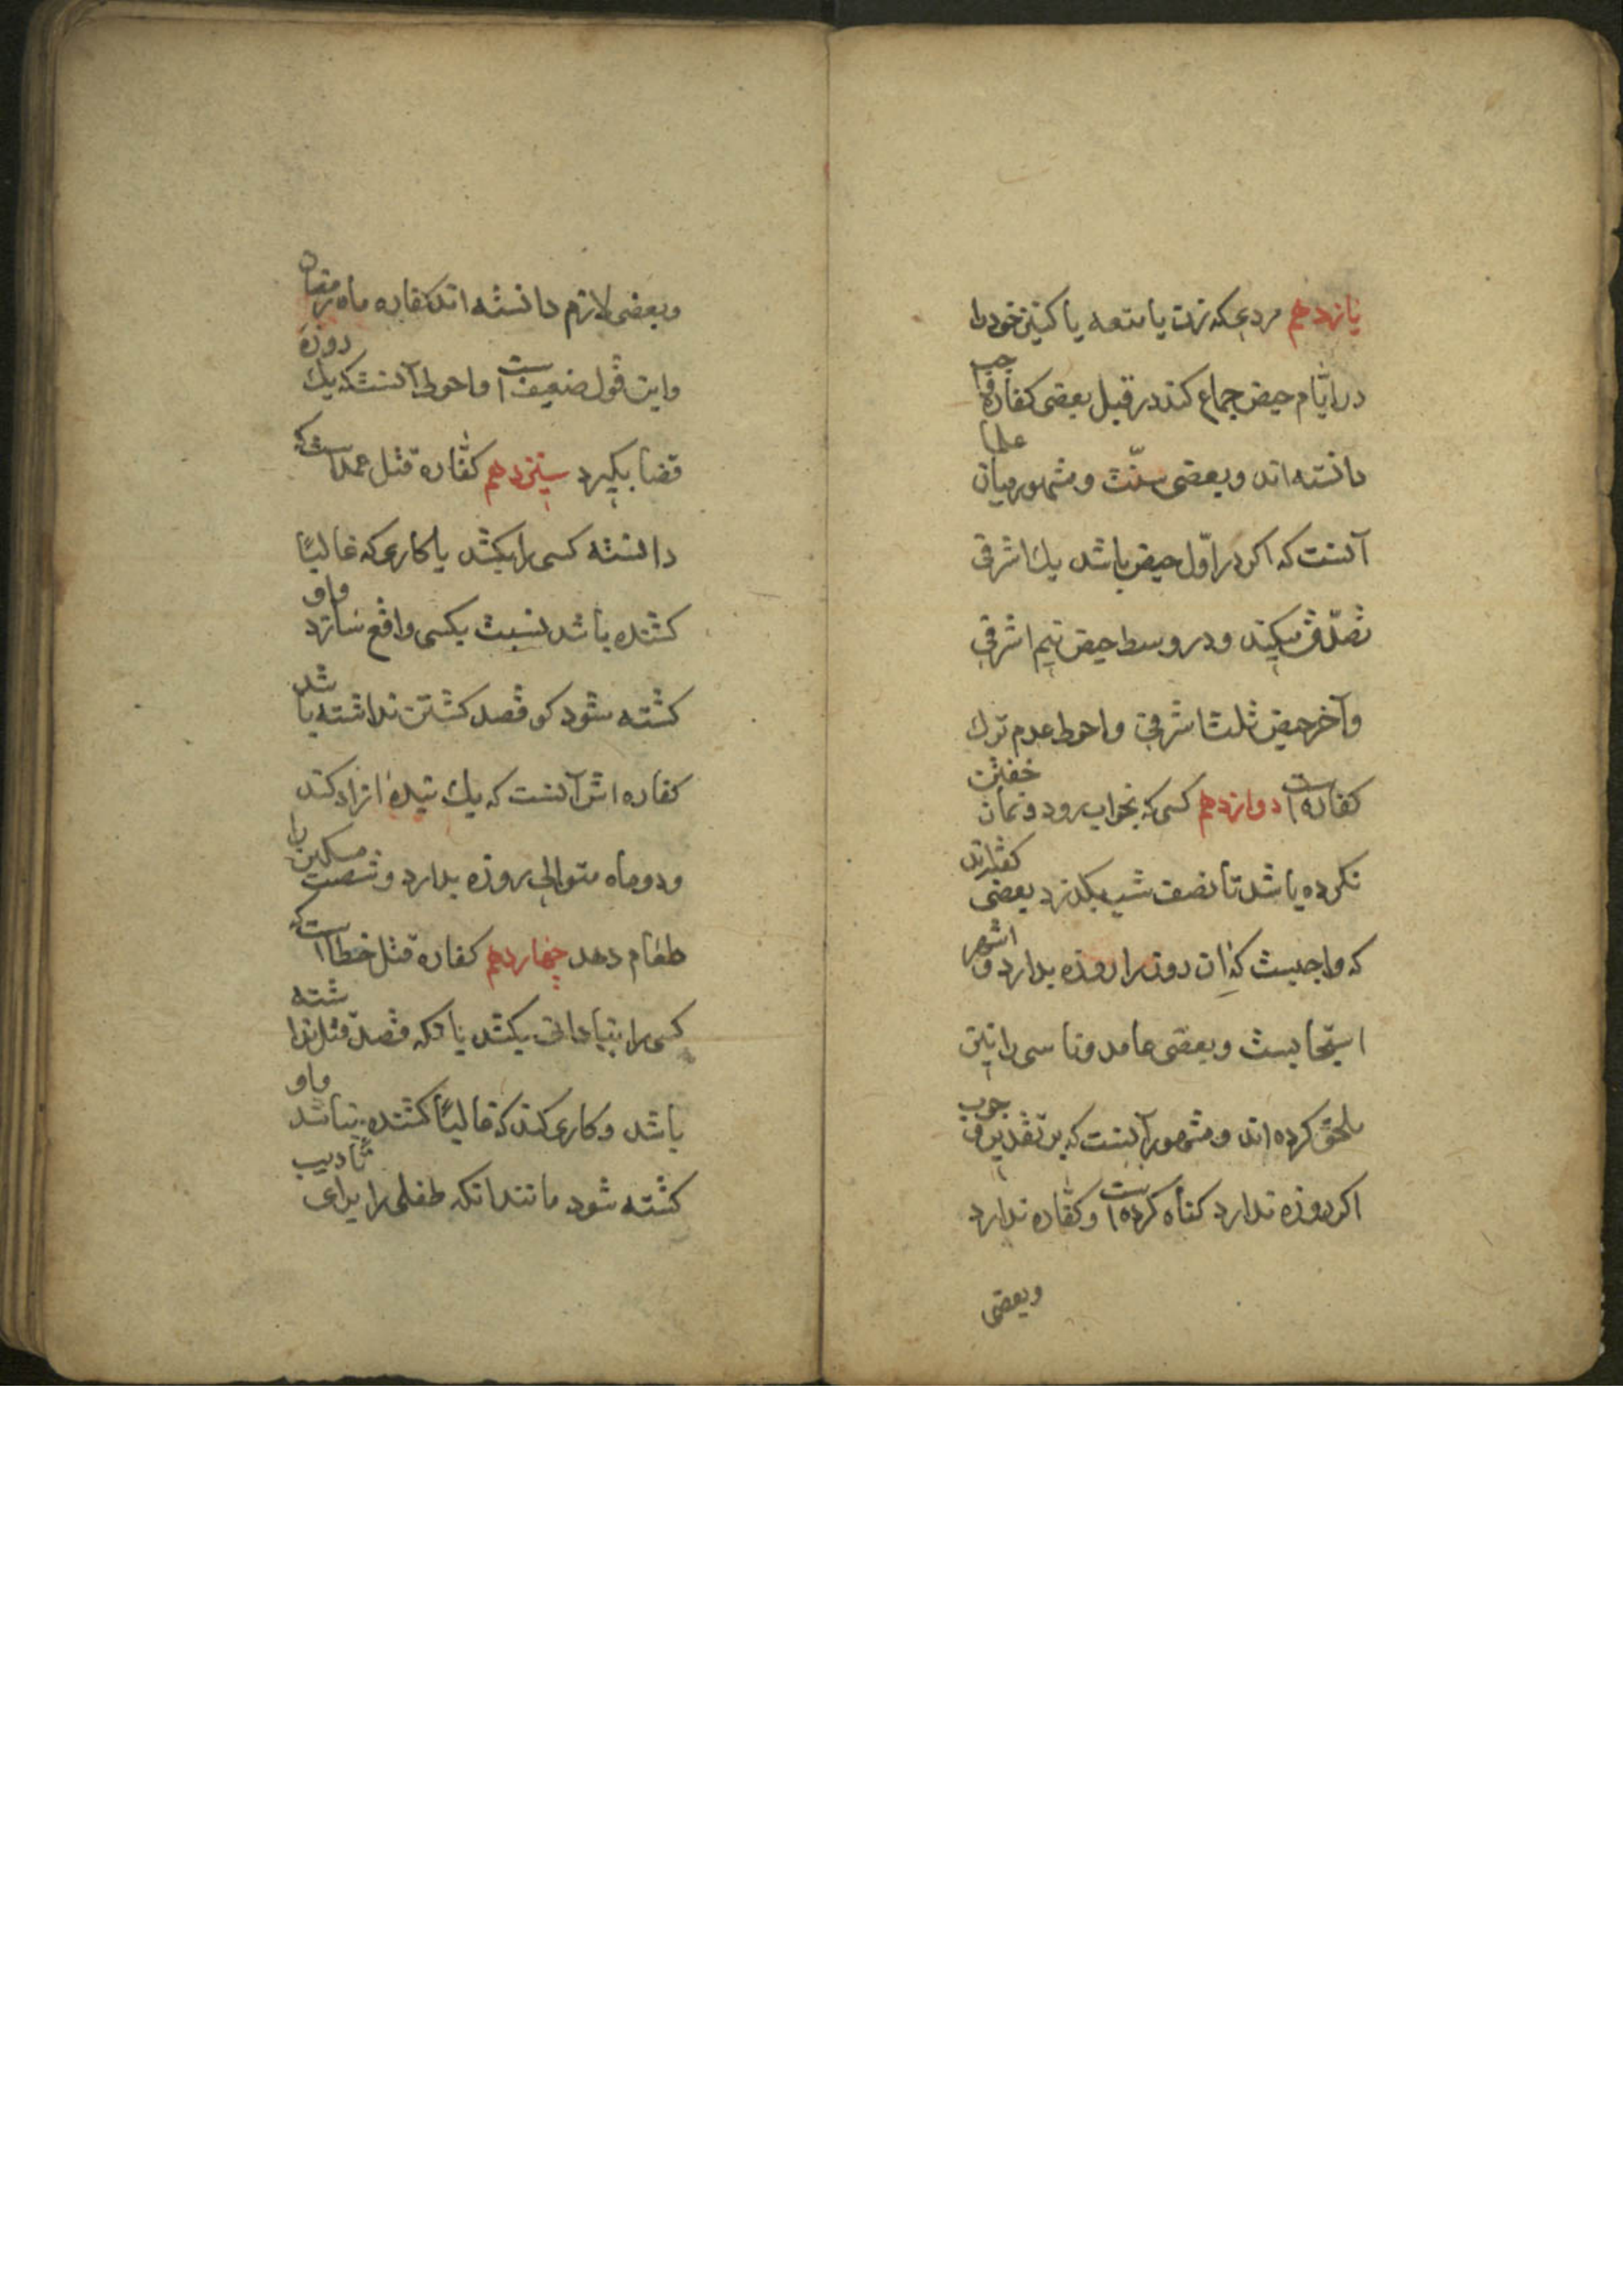 یازدهم مردی که زن یا متعه یا کنیز خود را
در ایّام حیض جماع کند در قبل بعضی کفاره واجب
دانسته اند و بعضی سنّت و مشهور میان علما
آنست که اکر در اوّل حیض باشد یک اشرفی
تصدّق میکند و در وسط حیض نیم اشرفی
و آخر حیض ثلث اشرفی و احوط عدم ترک
کفاره است دوازدهم کسی که بخواب رود و نماز خفتن
نکرده باشد تا نصف شب بکذرد بعضی کفته اند
که واجبست که آن روز را روزه بدارد و اشهر
استحبابست و بعضی عامد و ناسی را نیز
ملحق کرده اند و مشهور آنست که بر تقدیر وجوب
اکر روزه ندارد کناه کرده است و کفّاره ندارد
و بعضی
و بعضی لازم دانسته اند کفاره ماه رمضان
و این قول ضعیف است و احوط آنست که یک روزه
قضا بکیرد سیزدهم کفّاره قتل عمد است که
دانسته کسی را بکشد یا کاری که غالبًا
کشنده باشد نسبت بکسی واقع سازد و او
کشته شود کو قصد کشتن نداشته باشد
کفاره اش آنست که یک بنده ازاد کند
و دو ماه متوالی روزه بدارد و شصت مسکین را
طعام دهد چهاردهم کفاره قتل خطا است که
کسی را بنادانی بکشد یا آنکه قصد قتل نداشته
باشد و کاری کند که غالبًا کشنده نباشد و او
کشته شود مانند انکه طفلی را برای تأدیب